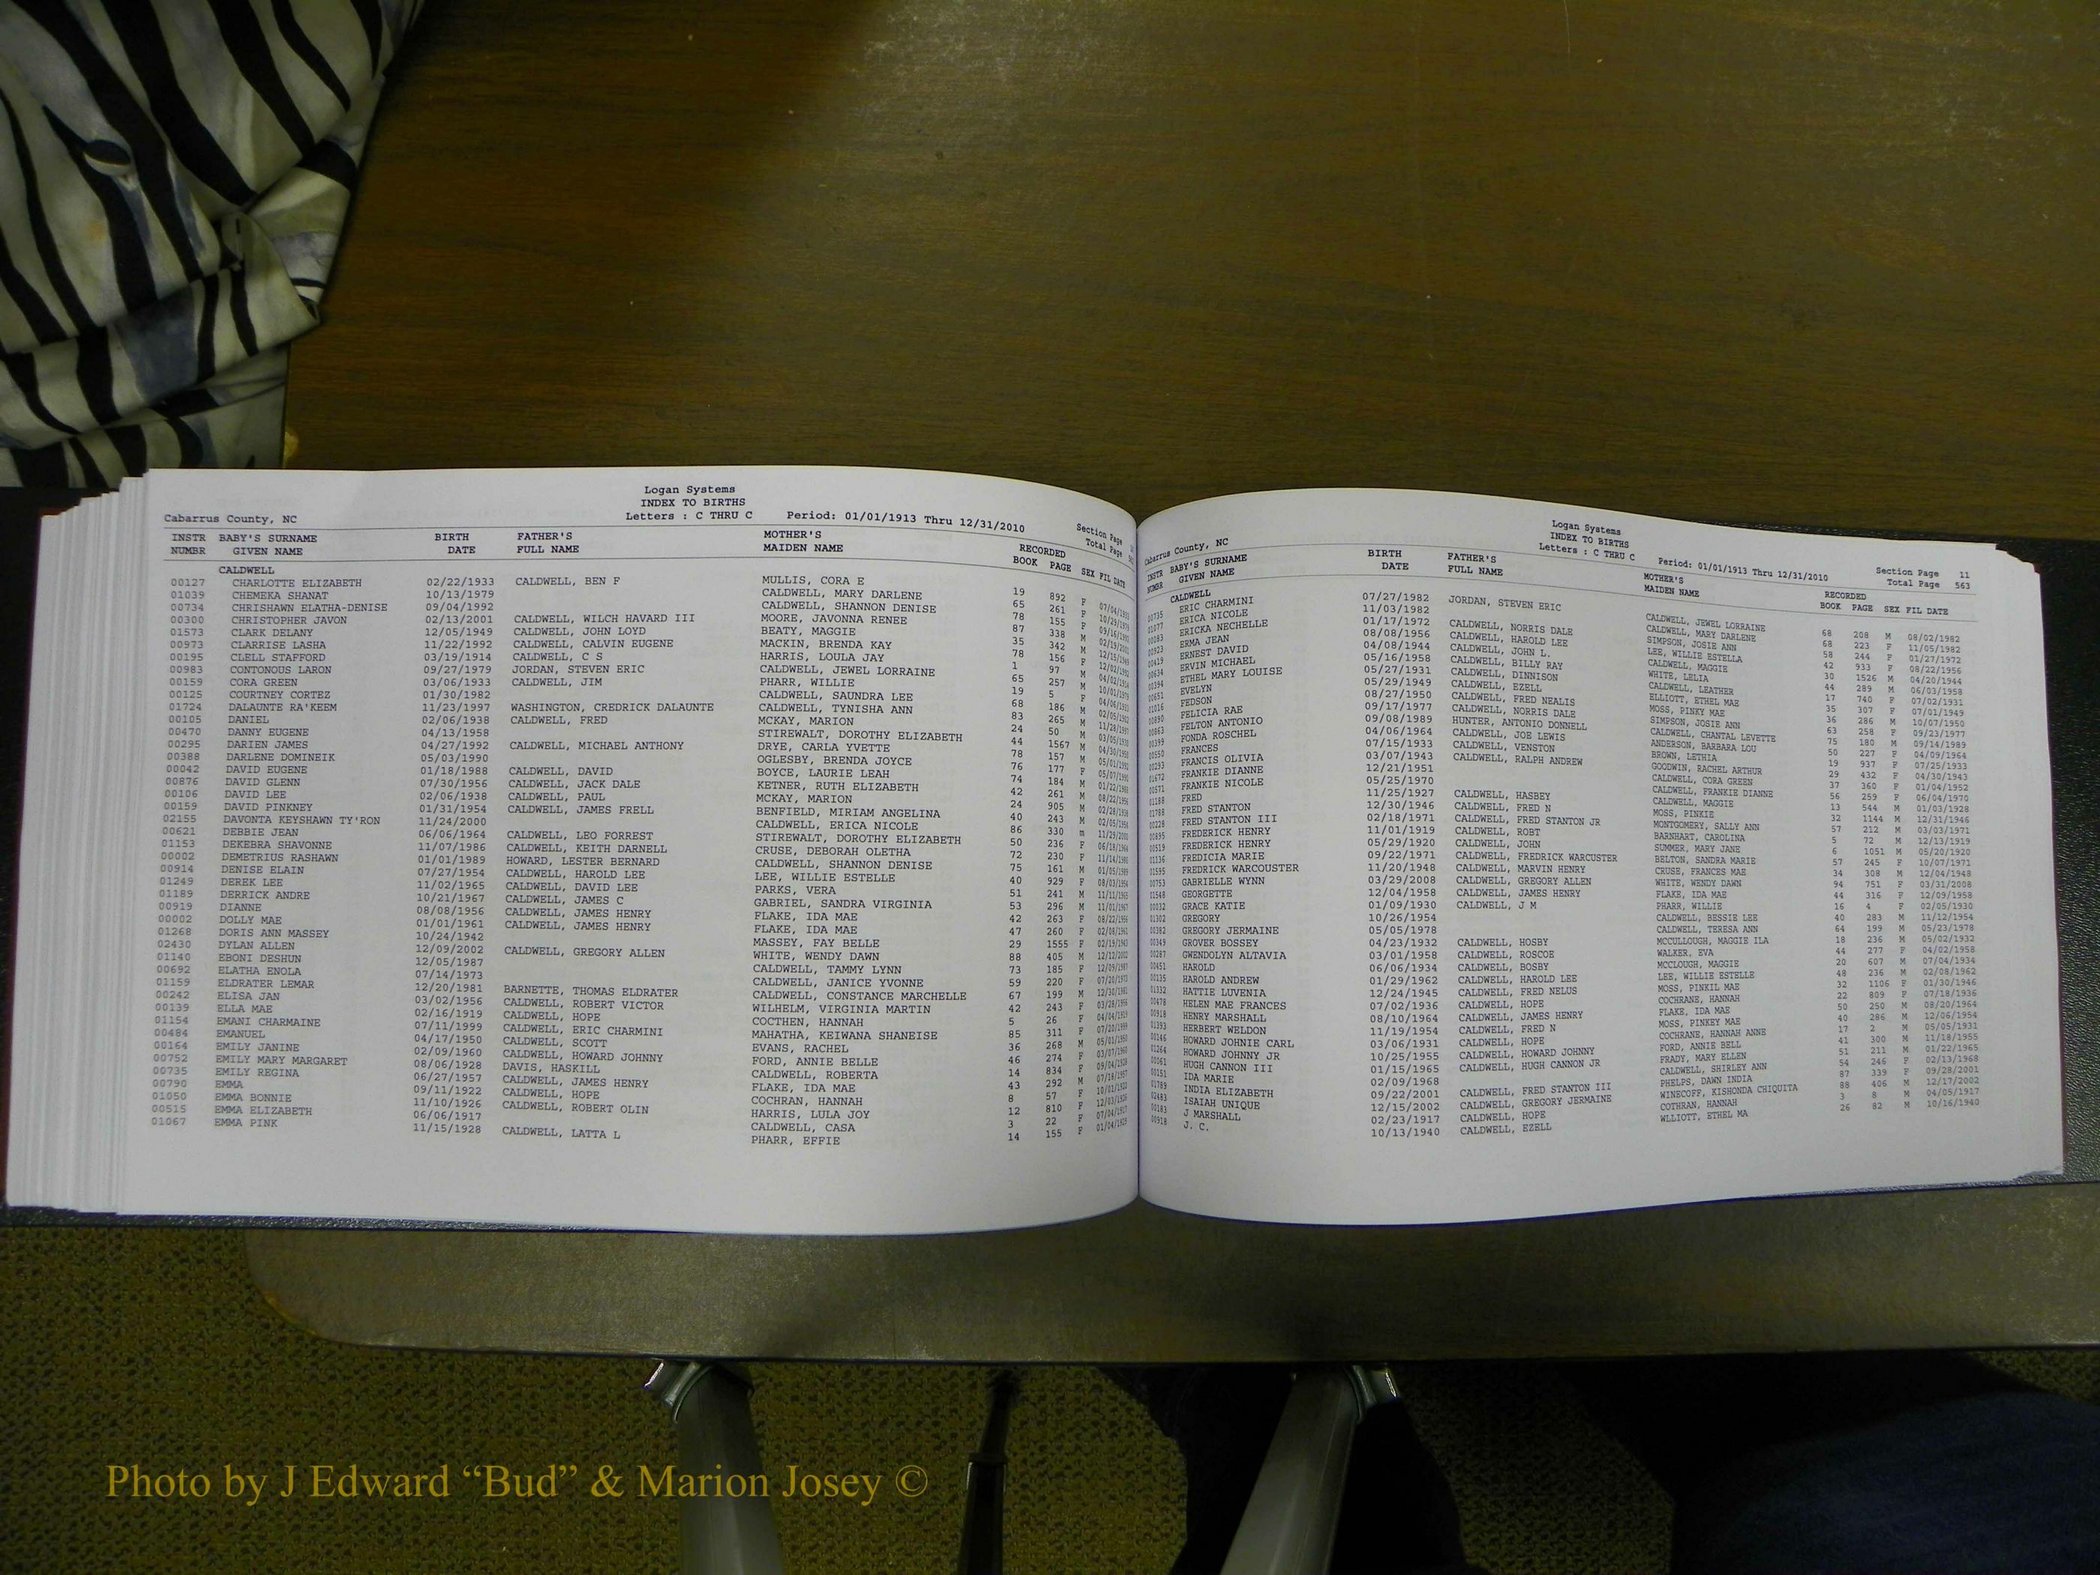 Logan Systems
INDEX TO BIRTHS
Cabarrus County, NC Letters : C THRU C Period: 01/01/1913 Thru 12/31/2010 Section Page
Total Page
INSTR BABY'S SURNAME BIRTH FATHER'S MOTHER'S RECORDED
NUMBR GIVEN NAME DATE FULL NAME MAIDEN NAME BOOK PAGE SEX FIL DATE
CALDWELL
00127 CHARLOTTE ELIZABETH 02/22/1933 CALDWELL, BEN F MULLIS, CORA E 19 892 F 07/04/1933
01039 CHEMEKA SHANAT 10/13/1979 CALDWELL, MARY DARLENE 65 261 F 10/29/1979
00734 CHRISHAWN ELATHA-DENISE 09/04/1992 CALDWELL, SHANNON DENISE 78 155 F 09/16/1992
00300 CHRISTOPHER JAVON 02/13/2001 CALDWELL, WILCH HAVARD III MOORE, JAVONNA RENEE 87 338 M 02/19/2001
01573 CLARK DELANY 12/05/1949 CALDWELL, JOHN LOYD BEATY, MAGGIE 35 342 M 12/15/1949
00973 CLARRISE LASHA 11/22/1992 CALDWELL, CALVIN EUGENE MACKIN, BRENDA KAY 78 156 F 12/02/1992
00195 CLELL STAFFORD 03/19/1914 CALDWELL, C S HARRIS, LOULA JAY 1 97 M 04/02/1914
00983 CONTONOUS LARON 09/27/1979 JORDAN, STEVEN ERIC CALDWELL, JEWEL LORRAINE 65 257 M 10/01/1979
00159 CORA GREEN 03/06/1933 CALDWELL, JIM PHARR, WILLIE 19 5 F 04/06/1933
00125 COURTNEY CORTEZ 01/30/1982 CALDWELL, SAUNDRA LEE 68 186 M 02/05/1982
01724 DALAUNTE RA'KEEM 11/23/1997 WASHINGTON, CREDRICK DALAUNTE CALDWELL, TYNISHA ANN 83 265 M 11/28/1997
00105 DANIEL 02/06/1938 CALDWELL, FRED MCKAY, MARION 24 50 M 03/05/1938
00470 DANNY EUGENE 04/13/1958 STIREWALT, DOROTHY ELIZABETH 44 1567 M 04/30/1958
00295 DARIEN JAMES 04/27/1992 CALDWELL, MICHAEL ANTHONY DRYE, CARLA YVETTE 78 157 M 05/01/1992
00388 DARLENE DOMINEIK 05/03/1990 OGLESBY, BRENDA JOYCE 76 177 F 05/07/1990
00042 DAVID EUGENE 01/18/1988 CALDWELL, DAVID BOYCE, LAURIE LEAH 74 184 M 01/22/1988
00876 DAVID GLENN 07/30/1956 CALDWELL, JACK DALE KETNER, RUTH ELIZABETH 42 261 M 08/22/1956
00106 DAVID LEE 02/06/1938 CALDWELL, PAUL MCKAY, MARION 24 905 M 02/28/1938
00159 DAVID PINKNEY 01/31/1954 CALDWELL, JAMES FRELL BENFIELD, MIRIAM ANGELINA 40 243 M 02/05/1954
02155 DAVONTA KEYSHAWN TY'RON 11/24/2000 CALDWELL, ERICA NICOLE 86 330 m 11/29/2000
00621 DEBBIE JEAN 06/06/1964 CALDWELL, LEO FORREST STIREWALT, DOROTHY ELIZABETH 50 236 F 06/18/1964
01153 DEKEBRA SHAVONNE 11/07/1986 CALDWELL, KEITH DARNELL CRUSE, DEBORAH OLETHA 72 230 F 11/14/1986
00002 DEMETRIUS RASHAWN 01/01/1989 HOWARD, LESTER BERNARD CALDWELL, SHANNON DENISE 75 161 M 01/05/1989
00914 DENISE ELAIN 07/27/1954 CALDWELL, HAROLD LEE LEE, WILLIE ESTELLE 40 929 F 08/03/1954
01249 DEREK LEE 11/02/1965 CALDWELL, DAVID LEE PARKS, VERA 51 241 M 11/11/1965
01189 DERRICK ANDRE 10/21/1967 CALDWELL, JAMES C GABRIEL, SANDRA VIRGINIA 53 296 M 11/01/1967
00919 DIANNE 08/08/1956 CALDWELL, JAMES HENRY FLAKE, IDA MAE 42 263 F 08/22/1956
00002 DOLLY MAE 01/01/1961 CALDWELL, JAMES HENRY FLAKE, IDA MAE 47 260 F 02/08/1961
01268 DORIS ANN MASSEY 10/24/1942 MASSEY, FAY BELLE 29 1555 F 02/19/1943
02430 DYLAN ALLEN 12/09/2002 CALDWELL, GREGORY ALLEN WHITE, WENDY DAWN 88 405 M 12/12/2002
01140 EBONI DESHUN 12/05/1987 CALDWELL, TAMMY LYNN 73 185 F 12/09/1987
00692 ELATHA ENOLA 07/14/1973 CALDWELL, JANICE YVONNE 59 220 F 07/20/1973
01159 ELDRATER LEMAR 12/20/1981 BARNETTE, THOMAS ELDRATER CALDWELL, CONSTANCE MARCHELLE 67 199 M 12/30/1981
00242 ELISA JAN 03/02/1956 CALDWELL, ROBERT VICTOR WILHELM, VIRGINIA MARTIN 42 243 F 03/28/1956
00139 ELLA MAE 02/16/1919 CALDWELL, HOPE COCTHEN, HANNAH 5 26 F 04/04/1919
01154 EMANI CHARMAINE 07/11/1999 CALDWELL, ERIC CHARMINI MAHATHA, KEIWANA SHANEISE 85 311 F 07/20/1999
00484 EMANUEL 04/17/1950 CALDWELL, SCOTT EVANS, RACHEL 36 268 M 05/01/1950
00164 EMILY JANINE 02/09/1960 CALDWELL, HOWARD JOHNNY FORD, ANNIE BELLE 46 274 F 03/07/1960
00752 EMILY MARY MARGARET 08/06/1928 DAVIS, HASKILL CALDWELL, ROBERTA 14 834 F 09/04/1928
00735 EMILY REGINA 06/27/1957 CALDWELL, JAMES HENRY FLAKE, IDA MAE 43 292 M 07/18/1957
00790 EMMA 09/11/1922 CALDWELL, HOPE COCHRAN, HANNAH 8 57 F 10/01/1922
01050 EMMA BONNIE 11/10/1926 CALDWELL, ROBERT OLIN HARRIS, LULA JOY 12 810 F 12/03/1926
00515 EMMA ELIZABETH 06/06/1917 CALDWELL, CASA 3 22 F 07/04/1917
01067 EMMA PINK 11/15/1928 CALDWELL, LATTA L PHARR, EFFIE 14 155 F 01/04/1929
Logan Systems
INDEX TO BIRTHS
Cabarrus County, NC Letters : C THRU C Period: 01/01/1913 Thru 12/31/2010 Section Page 11
Total Page 563
INSTR BABY'S SURNAME BIRTH FATHER'S MOTHER'S RECORDED
NUMBR GIVEN NAME DATE FULL NAME MAIDEN NAME BOOK PAGE SEX FIL DATE
CALDWELL
00735 ERIC CHARMINI 07/27/1982 JORDAN, STEVEN ERIC CALDWELL, JEWEL LORRAINE 68 208 M 08/02/1982
01077 ERICA NICOLE 11/03/1982 CALDWELL, MARY DARLENE 68 223 F 11/05/1982
00083 ERICKA NECHELLE 01/17/1972 CALDWELL, NORRIS DALE SIMPSON, JOSIE ANN 58 244 F 01/27/1972
00923 ERMA JEAN 08/08/1956 CALDWELL, HAROLD LEE LEE, WILLIE ESTELLA 42 933 F 08/22/1956
00419 ERNEST DAVID 04/08/1944 CALDWELL, JOHN L. CALDWELL, MAGGIE 30 1526 M 04/20/1944
00634 ERVIN MICHAEL 05/16/1958 CALDWELL, BILLY RAY WHITE, LELIA 44 289 M 06/03/1958
00394 ETHEL MARY LOUISE 05/27/1931 CALDWELL, DINNISON CALDWELL, LEATHER 17 740 F 07/02/1931
00651 EVELYN 05/29/1949 CALDWELL, EZELL ELLIOTT, ETHEL MAE 35 307 F 07/01/1949
01016 FEDSON 08/27/1950 CALDWELL, FRED NEALIS MOSS, PINKY MAE 36 286 M 10/07/1950
00890 FELICIA RAE 09/17/1977 CALDWELL, NORRIS DALE SIMPSON, JOSIE ANN 63 258 F 09/23/1977
00863 FELTON ANTONIO 09/08/1989 HUNTER, ANTONIO DONNELL CALDWELL, CHANTAL LEVETTE 75 180 M 09/14/1989
00399 FONDA ROSCHEL 04/06/1964 CALDWELL, JOE LEWIS ANDERSON, BARBARA LOU 50 227 F 04/09/1964
00550 FRANCES 07/15/1933 CALDWELL, VENSTON BROWN, LETHIA 19 937 F 07/25/1933
00293 FRANCIS OLIVIA 03/07/1943 CALDWELL, RALPH ANDREW GOODWIN, RACHEL ARTHUR 29 432 F 04/30/1943
01672 FRANKIE DIANNE 12/21/1951 CALDWELL, CORA GREEN 37 360 F 01/04/1952
00571 FRANKIE NICOLE 05/25/1970 CALDWELL, FRANKIE DIANNE 56 259 F 06/04/1970
01188 FRED 11/25/1927 CALDWELL, HASBEY CALDWELL, MAGGIE 13 544 M 01/03/1928
01788 FRED STANTON 12/30/1946 CALDWELL, FRED N MOSS, PINKIE 32 1144 M 12/31/1946
00228 FRED STANTON III 02/18/1971 CALDWELL, FRED STANTON JR MONTGOMERY, SALLY ANN 57 212 M 03/03/1971
00895 FREDERICK HENRY 11/01/1919 CALDWELL, ROBT BARNHART, CAROLINA 5 72 M 12/13/1919
00519 FREDERICK HENRY 05/29/1920 CALDWELL, JOHN SUMMER, MARY JANE 6 1051 M 05/20/1920
01136 FREDICIA MARIE 09/22/1971 CALDWELL, FREDRICK WARCUSTER BELTON, SANDRA MARIE 57 245 F 10/07/1971
01595 FREDRICK WARCOUSTER 11/20/1948 CALDWELL, MARVIN HENRY CRUSE, FRANCES MAE 34 308 M 12/04/1948
00753 GABRIELLE WYNN 03/29/2008 CALDWELL, GREGORY ALLEN WHITE, WENDY DAWN 94 751 F 03/31/2008
01548 GEORGETTE 12/04/1958 CALDWELL, JAMES HENRY FLAKE, IDA MAE 44 316 F 12/09/1958
00032 GRACE KATIE 01/09/1930 CALDWELL, J M PHARR, WILLIE 16 4 F 02/05/1930
01302 GREGORY 10/26/1954 CALDWELL, BESSIE LEE 40 283 M 11/12/1954
00382 GREGORY JERMAINE 05/05/1978 CALDWELL, TERESA ANN 64 199 M 05/23/1978
00349 GROVER BOSSEY 04/23/1932 CALDWELL, HOSBY MCCULLOUGH, MAGGIE ILA 18 236 M 05/02/1932
00287 GWENDOLYN ALTAVIA 03/01/1958 CALDWELL, ROSCOE WALKER, EVA 44 277 F 04/02/1958
00451 HAROLD 06/06/1934 CALDWELL, BOSBY MCCLOUGH, MAGGIE 20 607 M 07/04/1934
00135 HAROLD ANDREW 01/29/1962 CALDWELL, HAROLD LEE LEE, WILLIE ESTELLE 48 236 M 02/08/1962
01332 HATTIE LUVENIA 12/24/1945 CALDWELL, FRED NELUS MOSS, PINKIL MAE 32 1106 F 01/30/1946
00478 HELEN MAE FRANCES 07/02/1936 CALDWELL, HOPE COCHRANE, HANNAH 22 809 F 07/18/1936
00918 HENRY MARSHALL 08/10/1964 CALDWELL, JAMES HENRY FLAKE, IDA MAE 50 250 M 08/20/1964
01393 HERBERT WELDON 11/19/1954 CALDWELL, FRED N MOSS, PINKEY MAE 40 286 M 12/06/1954
00146 HOWARD JOHNIE CARL 03/06/1931 CALDWELL, HOPE COCHRANE, HANNAH ANNE 17 2 M 05/05/1931
01264 HOWARD JOHNNY JR 10/25/1955 CALDWELL, HOWARD JOHNNY FORD, ANNIE BELL 41 300 M 11/18/1955
00061 HUGH CANNON III 01/15/1965 CALDWELL, HUGH CANNON JR FRADY, MARY ELLEN 51 211 M 01/22/1965
00151 IDA MARIE 02/09/1968 CALDWELL, SHIRLEY ANN 54 246 F 02/13/1968
01789 INDIA ELIZABETH 09/22/2001 CALDWELL, FRED STANTON III PHELPS, DAWN INDIA 87 339 F 09/28/2001
02483 ISAIAH UNIQUE 12/15/2002 CALDWELL, GREGORY JERMAINE WINECOFF, KISHONDA CHIQUITA 88 406 M 12/17/2002
00183 J MARSHALL 02/23/1917 CALDWELL, HOPE COTHRAN, HANNAH 3 8 M 04/05/1917
00918 J. C. 10/13/1940 CALDWELL, EZELL WLLIOTT, ETHEL MA 26 82 M 10/16/1940
Photo by J Edward “Bud” & Marion Josey ©